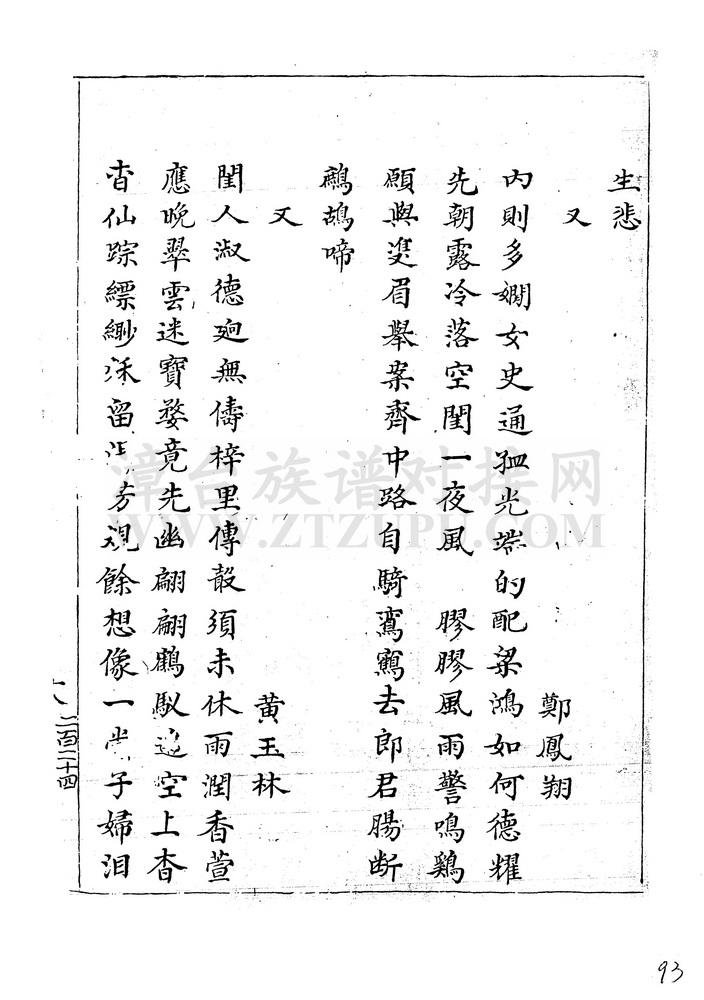 生悲
又
鄭鳳翔
内則多嫻女史通孤光端的配梁鴻如何德耀
先朝露冷落空閨一夜風 膠膠風雨警鳴鷄
願與雙眉舉案齊中路自騎鸞鶴去郎君腸断
鷓鴣啼
又
黄玉林
閨人淑德迥無儔梓里傳殽須未休雨潤香萱
應晚翠雲迷寶婺竟先幽翩翩鶴馭遥空上杳
杳仙踪縹緲 留 芳規餘想像一 子婦泪
二百二十四
93
漳台族谱对接网
WWW.ZTZUPU.COM